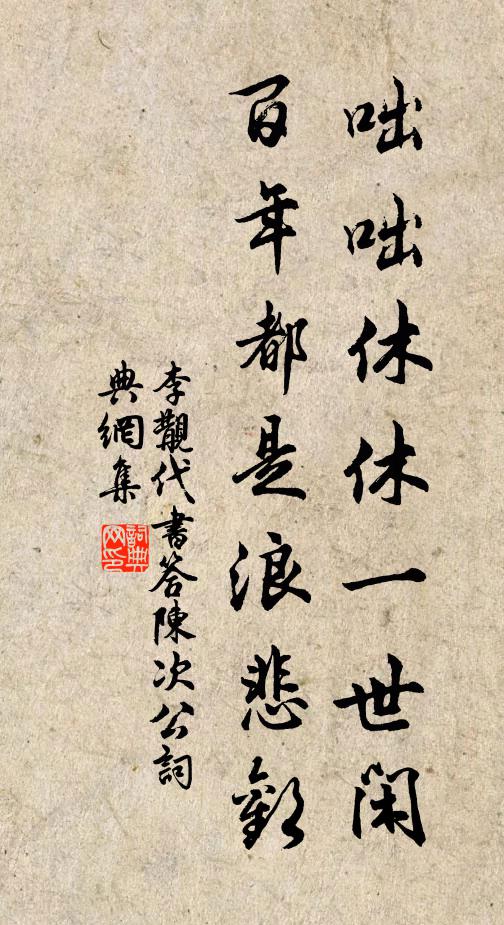 咄咄休休一世閑
百年都是浪悲歡
李覯代書答陳次公詞
典網集
詞典
网印